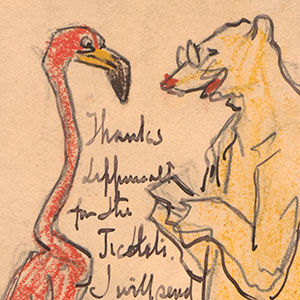 Thanks
for the
Tickets.
I will send